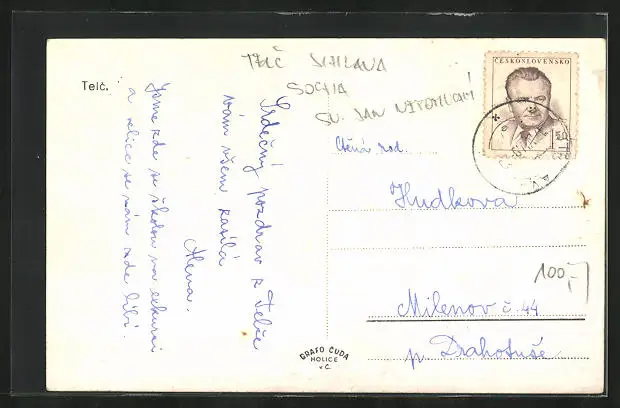 Telč.
TELČ JIHLAVA
SOCHA
SV. JAN NEPOMUCKÝ
Srdečný pozdrav z Telče
vám všem zasílá
Alena.
Jsme zde se školou na exkursi
a velice se nám zde líbí.
ČESKOSLOVENSKO
1,50
Ctěná rod.
Hudkova
100,-
Milenov č. 44
p. Drahotuše
GRAFO ČUDA
HOLICE
v Č.